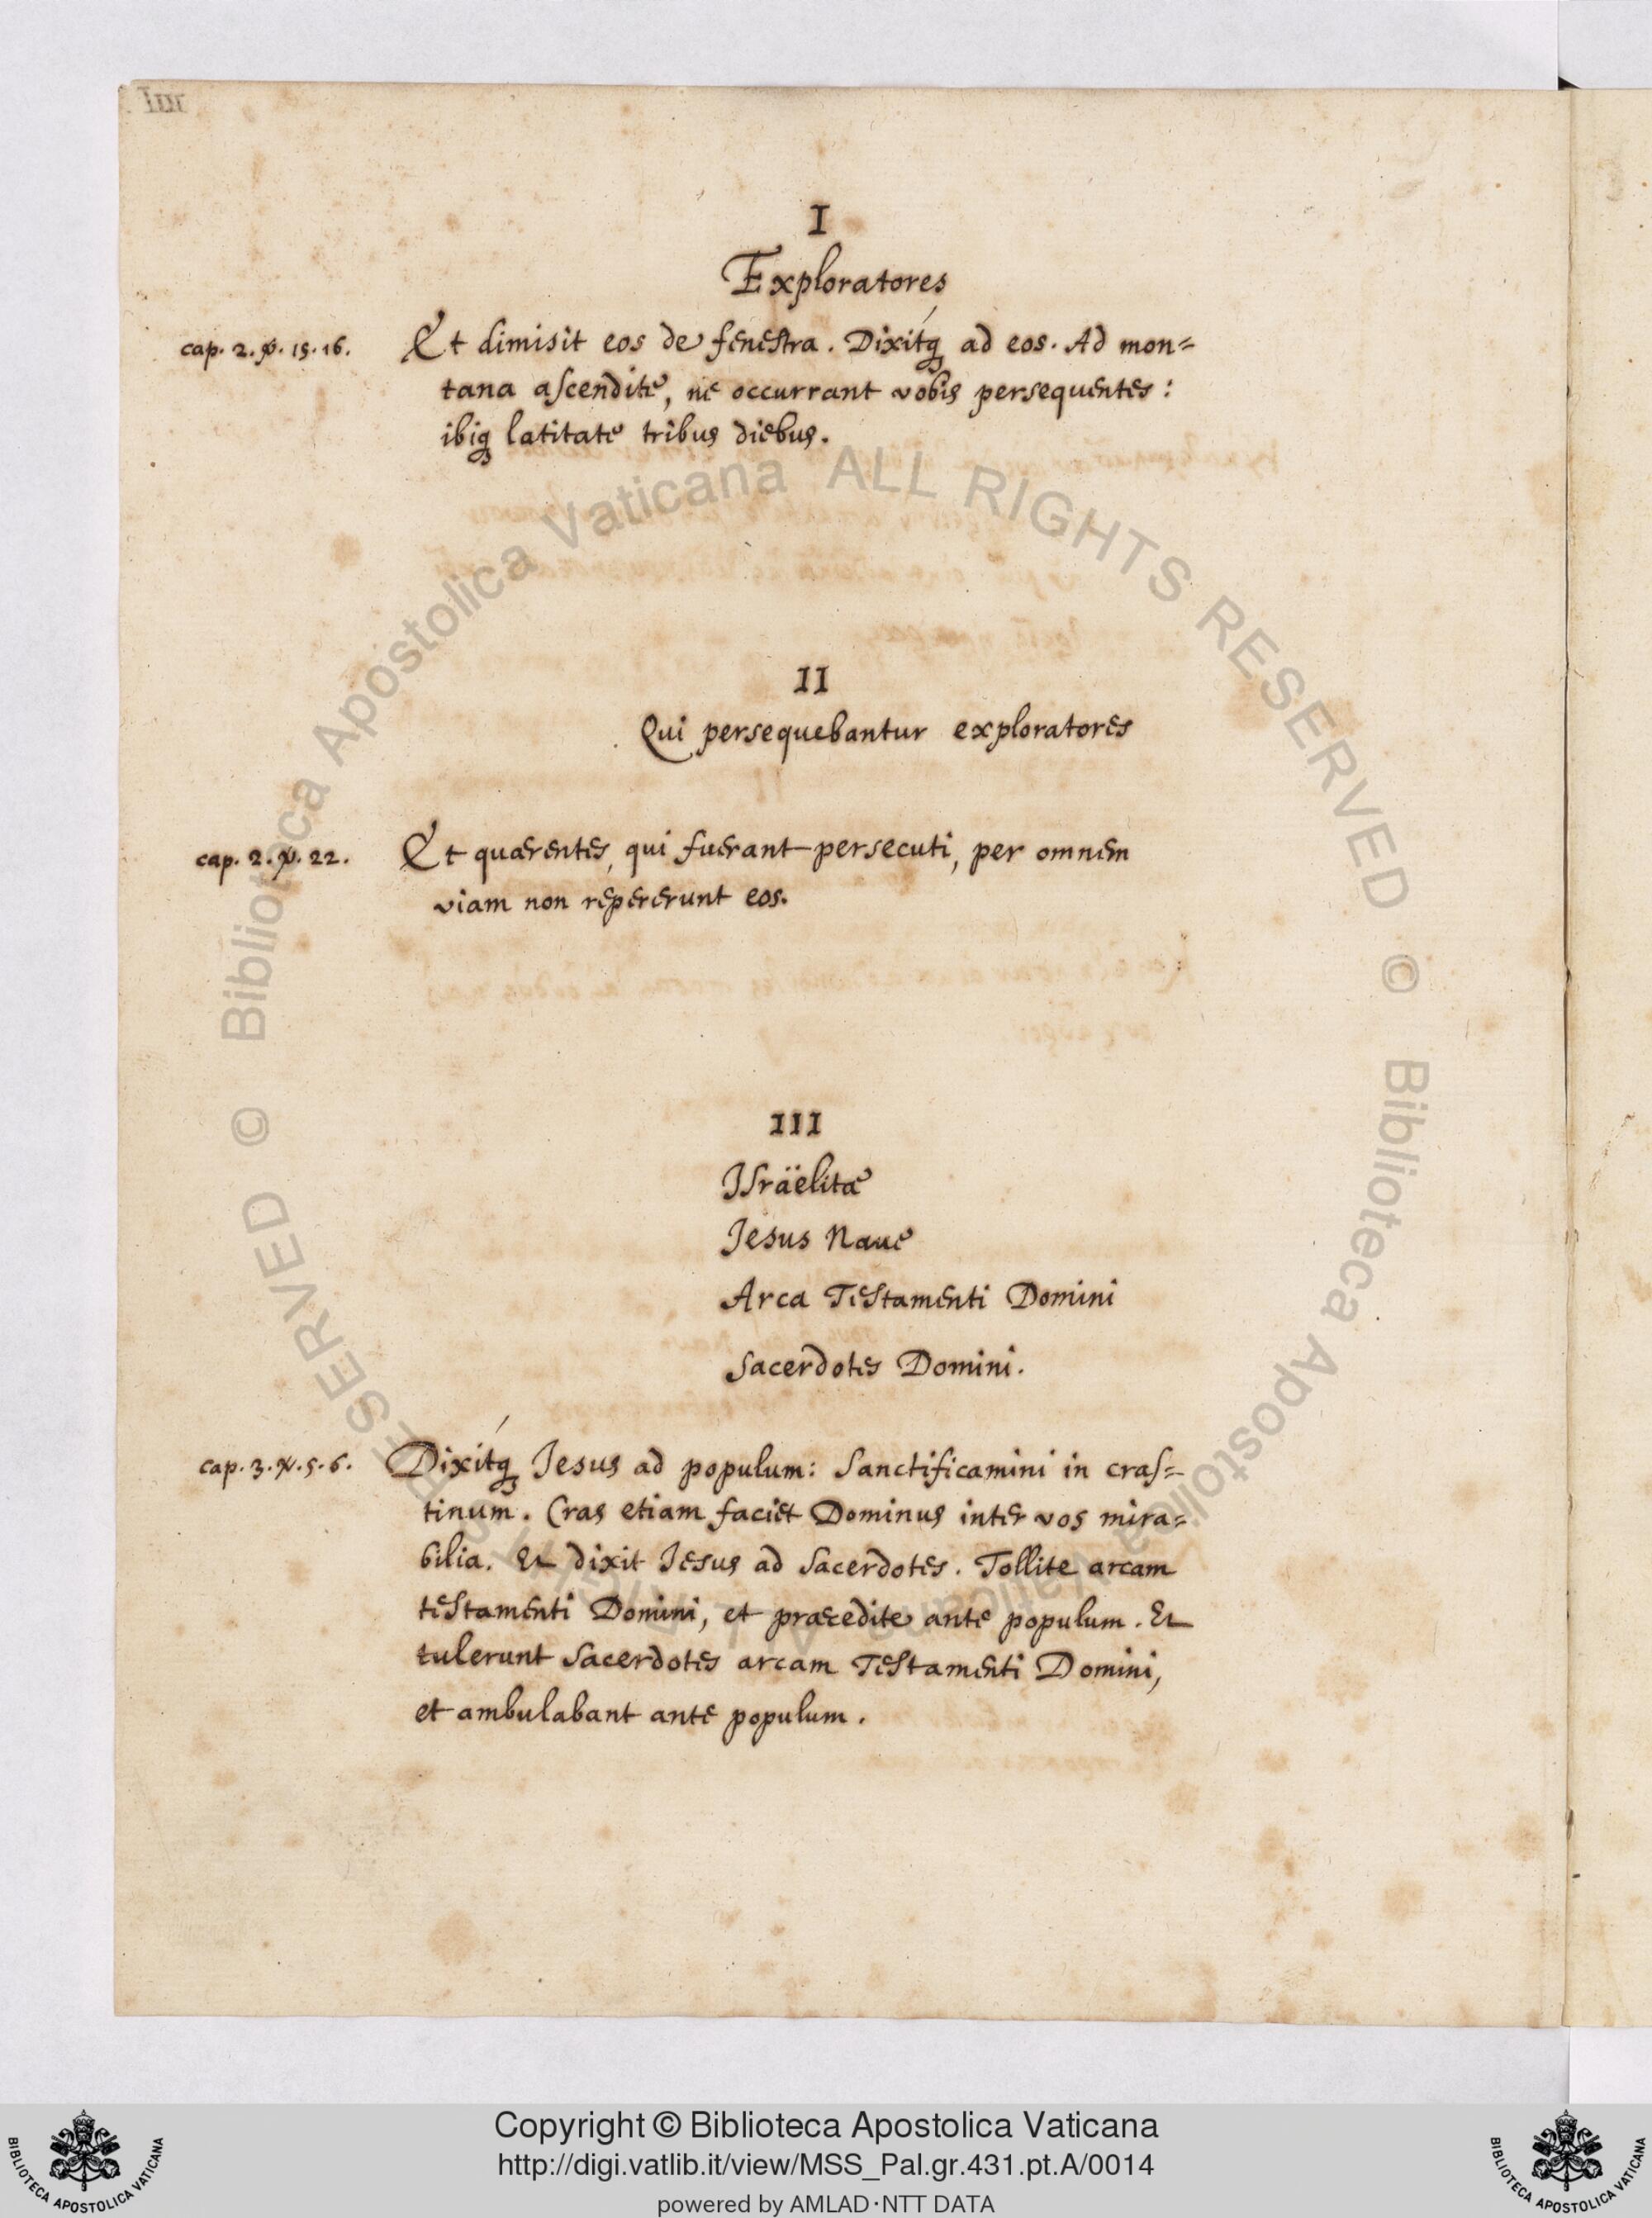 I
Exploratores
cap. 2. ꝟ. 15. 16. Et dimisit eos de fenestra. Dixítq₃ ad eos. Ad mon=
tana ascendite, ne occurrant vobis persequentes:
ibiq₃ latitate tribus diebus.
II
Qui persequebantur exploratores
cap. 2. ꝟ. 22. Et quærentes, qui fuerant persecuti, per omnem
viam non repererunt eos.
III
Isräelitæ
Jesus Naue
Arca Testamenti Domini
Sacerdotes Domini.
cap. 3. ꝟ. 5. 6. Dixítq₃ Jesus ad populum: Sanctificamini in cras=
tinum. Cras etiam faciet Dominus inter vos mira=
bilia. Et dixit Iesus ad Sacerdotes. Tollite arcam
testamenti Domini, et præcedite ante populum. Et
tulerunt Sacerdotes arcam Testamenti Domini,
et ambulabant ante populum.
© Biblioteca Apostolica Vaticana ALL RIGHTS RESERVED
© Biblioteca Apostolica Vaticana ALL RIGHTS RESERVED
Copyright © Biblioteca Apostolica Vaticana
http://digi.vatlib.it/view/MSS_Pal.gr.431.pt.A/0014
powered by AMLAD·NTT DATA
BIBLIOTECA APOSTOLICA VATICANA
BIBLIOTECA APOSTOLICA VATICANA